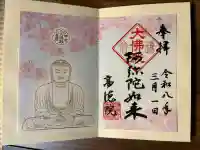 奉拝
令和八年
三月一日
大佛
阿弥陀如来
高徳院